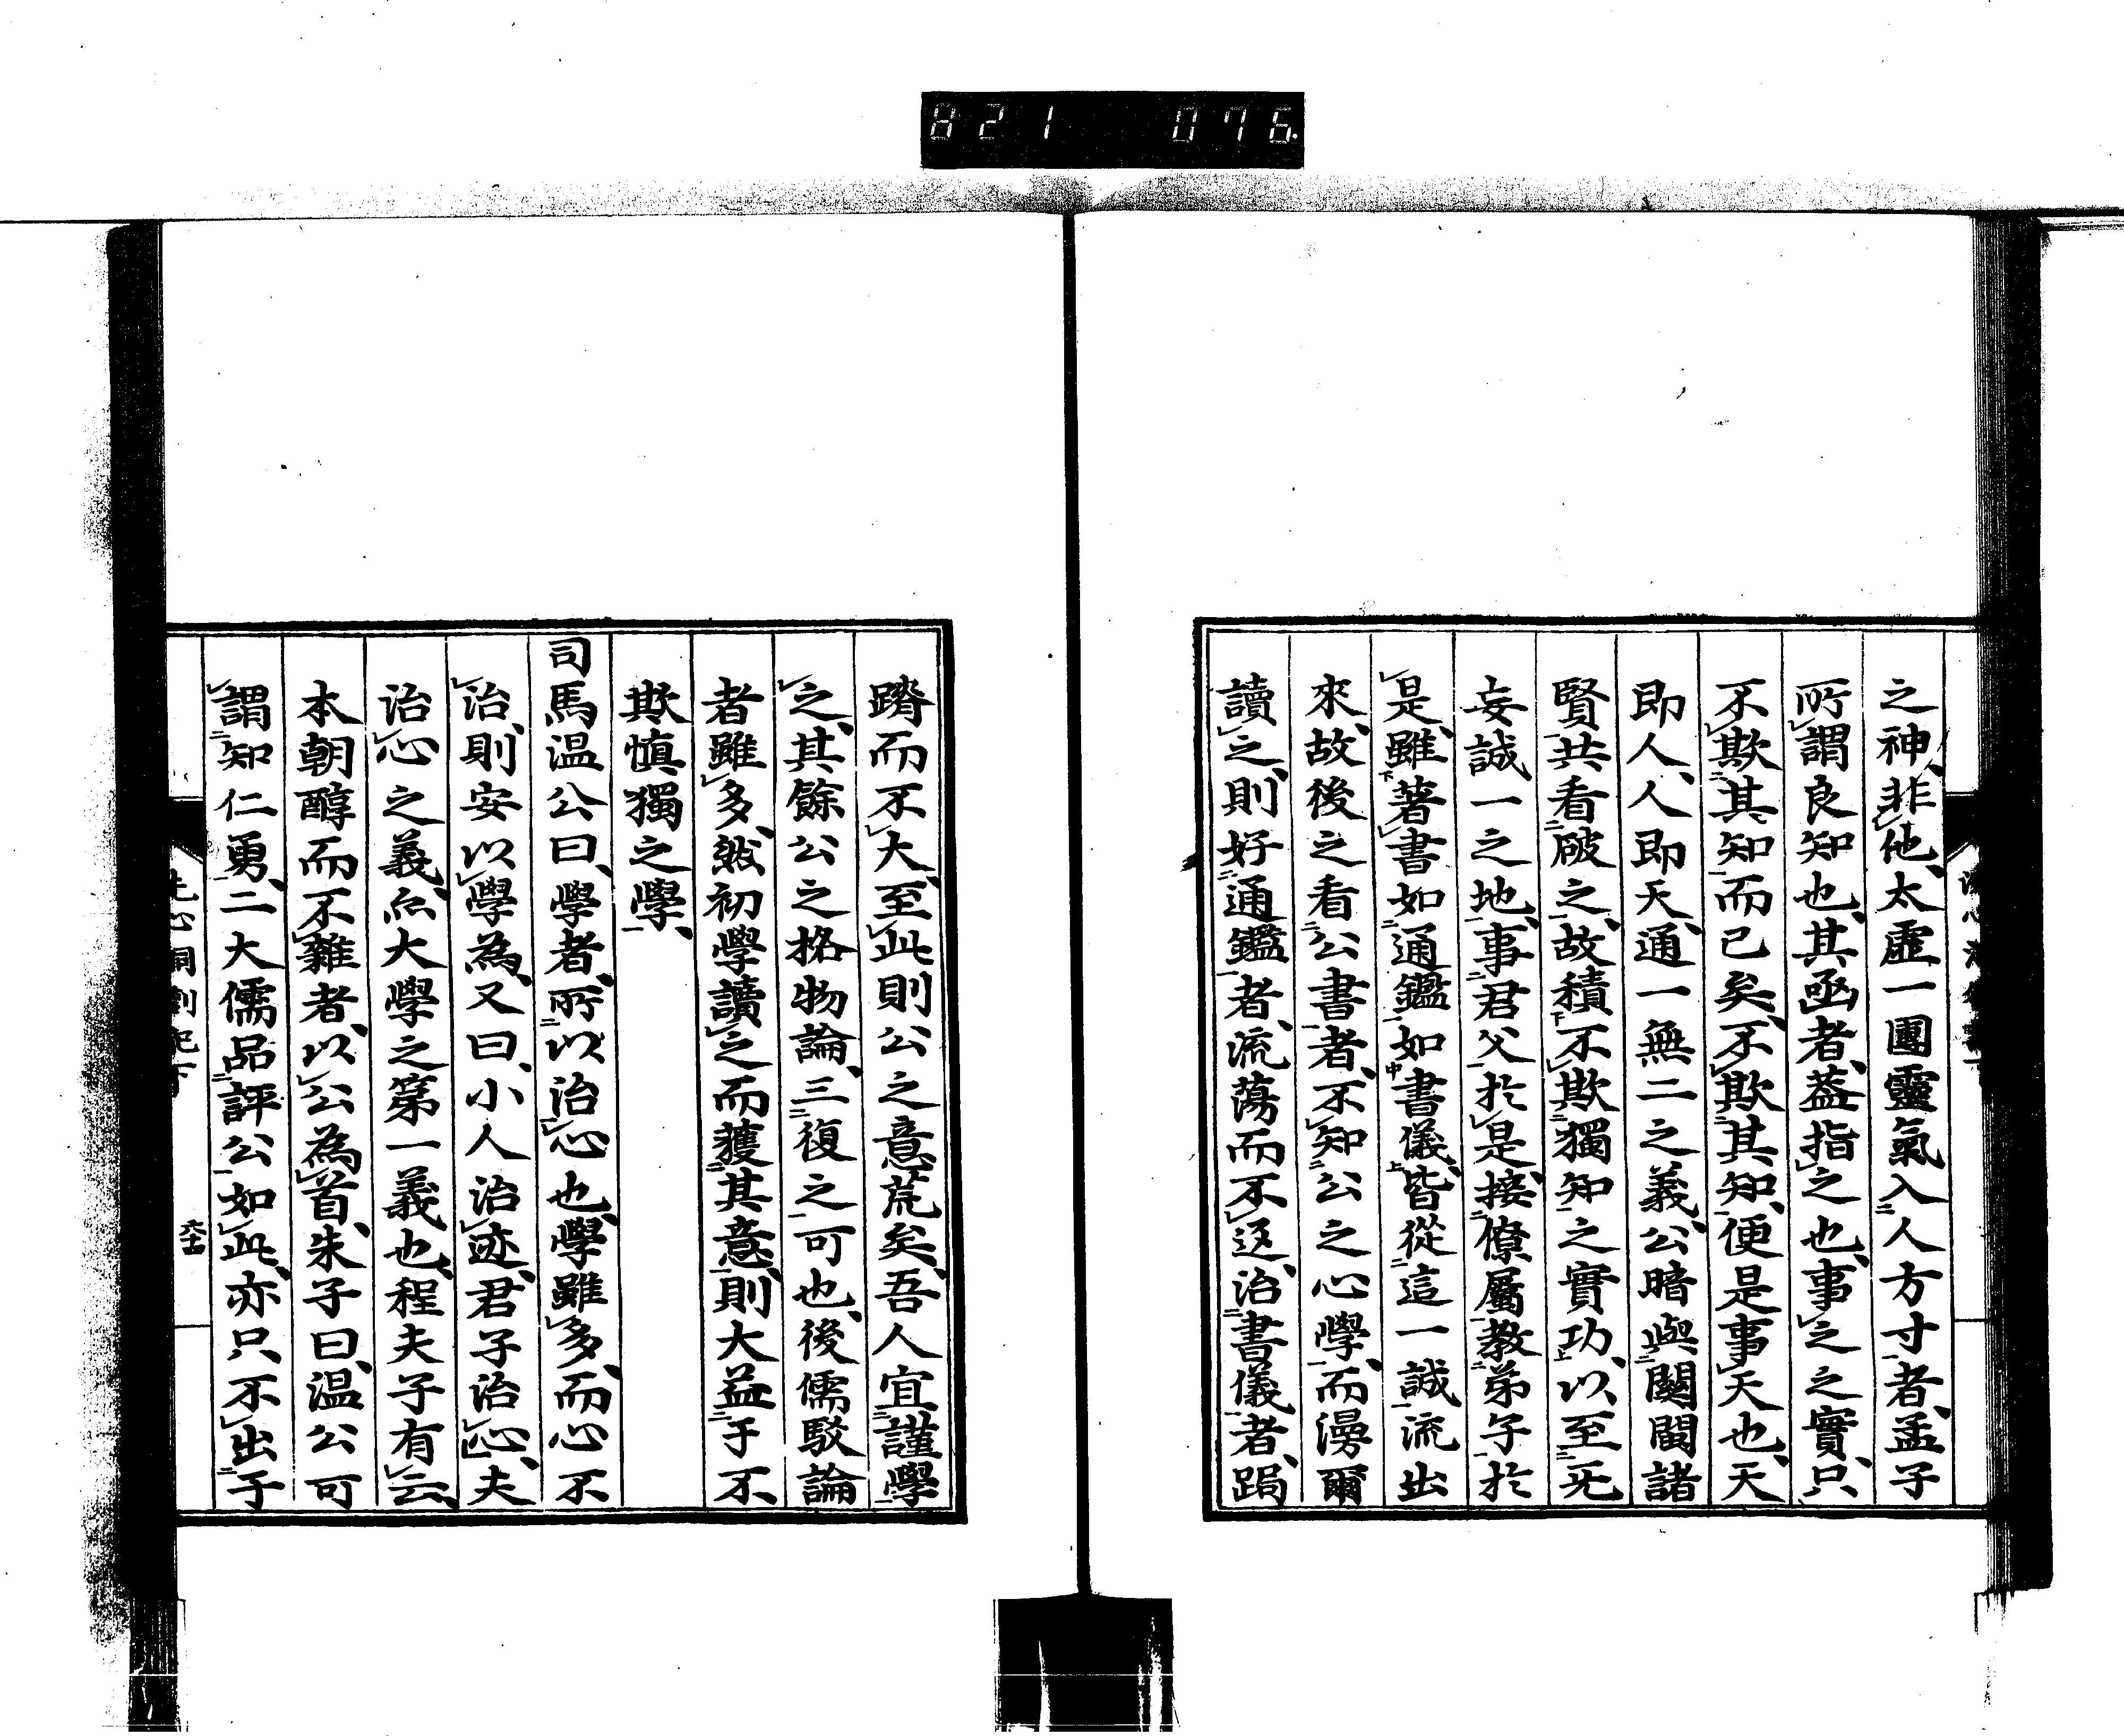 821 076
之神、非他、太虛一團靈氣入人方寸者、孟子
所謂良知也、其亟者、蓋指之也、事之之實、只
不欺其知而已矣、不欺其知、便是事天也、天
即人、人即天、通一無二之義、公暗與關閩諸
賢共看破之、故積不欺獨知之實功、以至无
妄誠一之地、事君父於是、接僚屬教弟子於
是、雖著書如通鑑如書儀、皆從這一誠流出
來、故後之看公書者、不知公之心學、而漫爾
讀之、則好通鑑者、流蕩而不返、治書儀者、跼
蹐而不大、至此則公之意荒矣、吾人宜謹學
之、其餘公之格物論、三復之可也、後儒駁論
者雖多、然初學讀之而獲其意、則大益于不
欺慎獨之學、
司馬温公曰、學者、所以治心也、學雖多、而心不
治、則安以學為、又曰、小人治迹、君子治心、夫
治心之義、亦大學之第一義也、程夫子有云、
本朝醇而不雜者、以公為首、朱子曰、温公可
謂知仁勇、二大儒品評公如此、亦只不出于
洗心洞劄記下
六十四